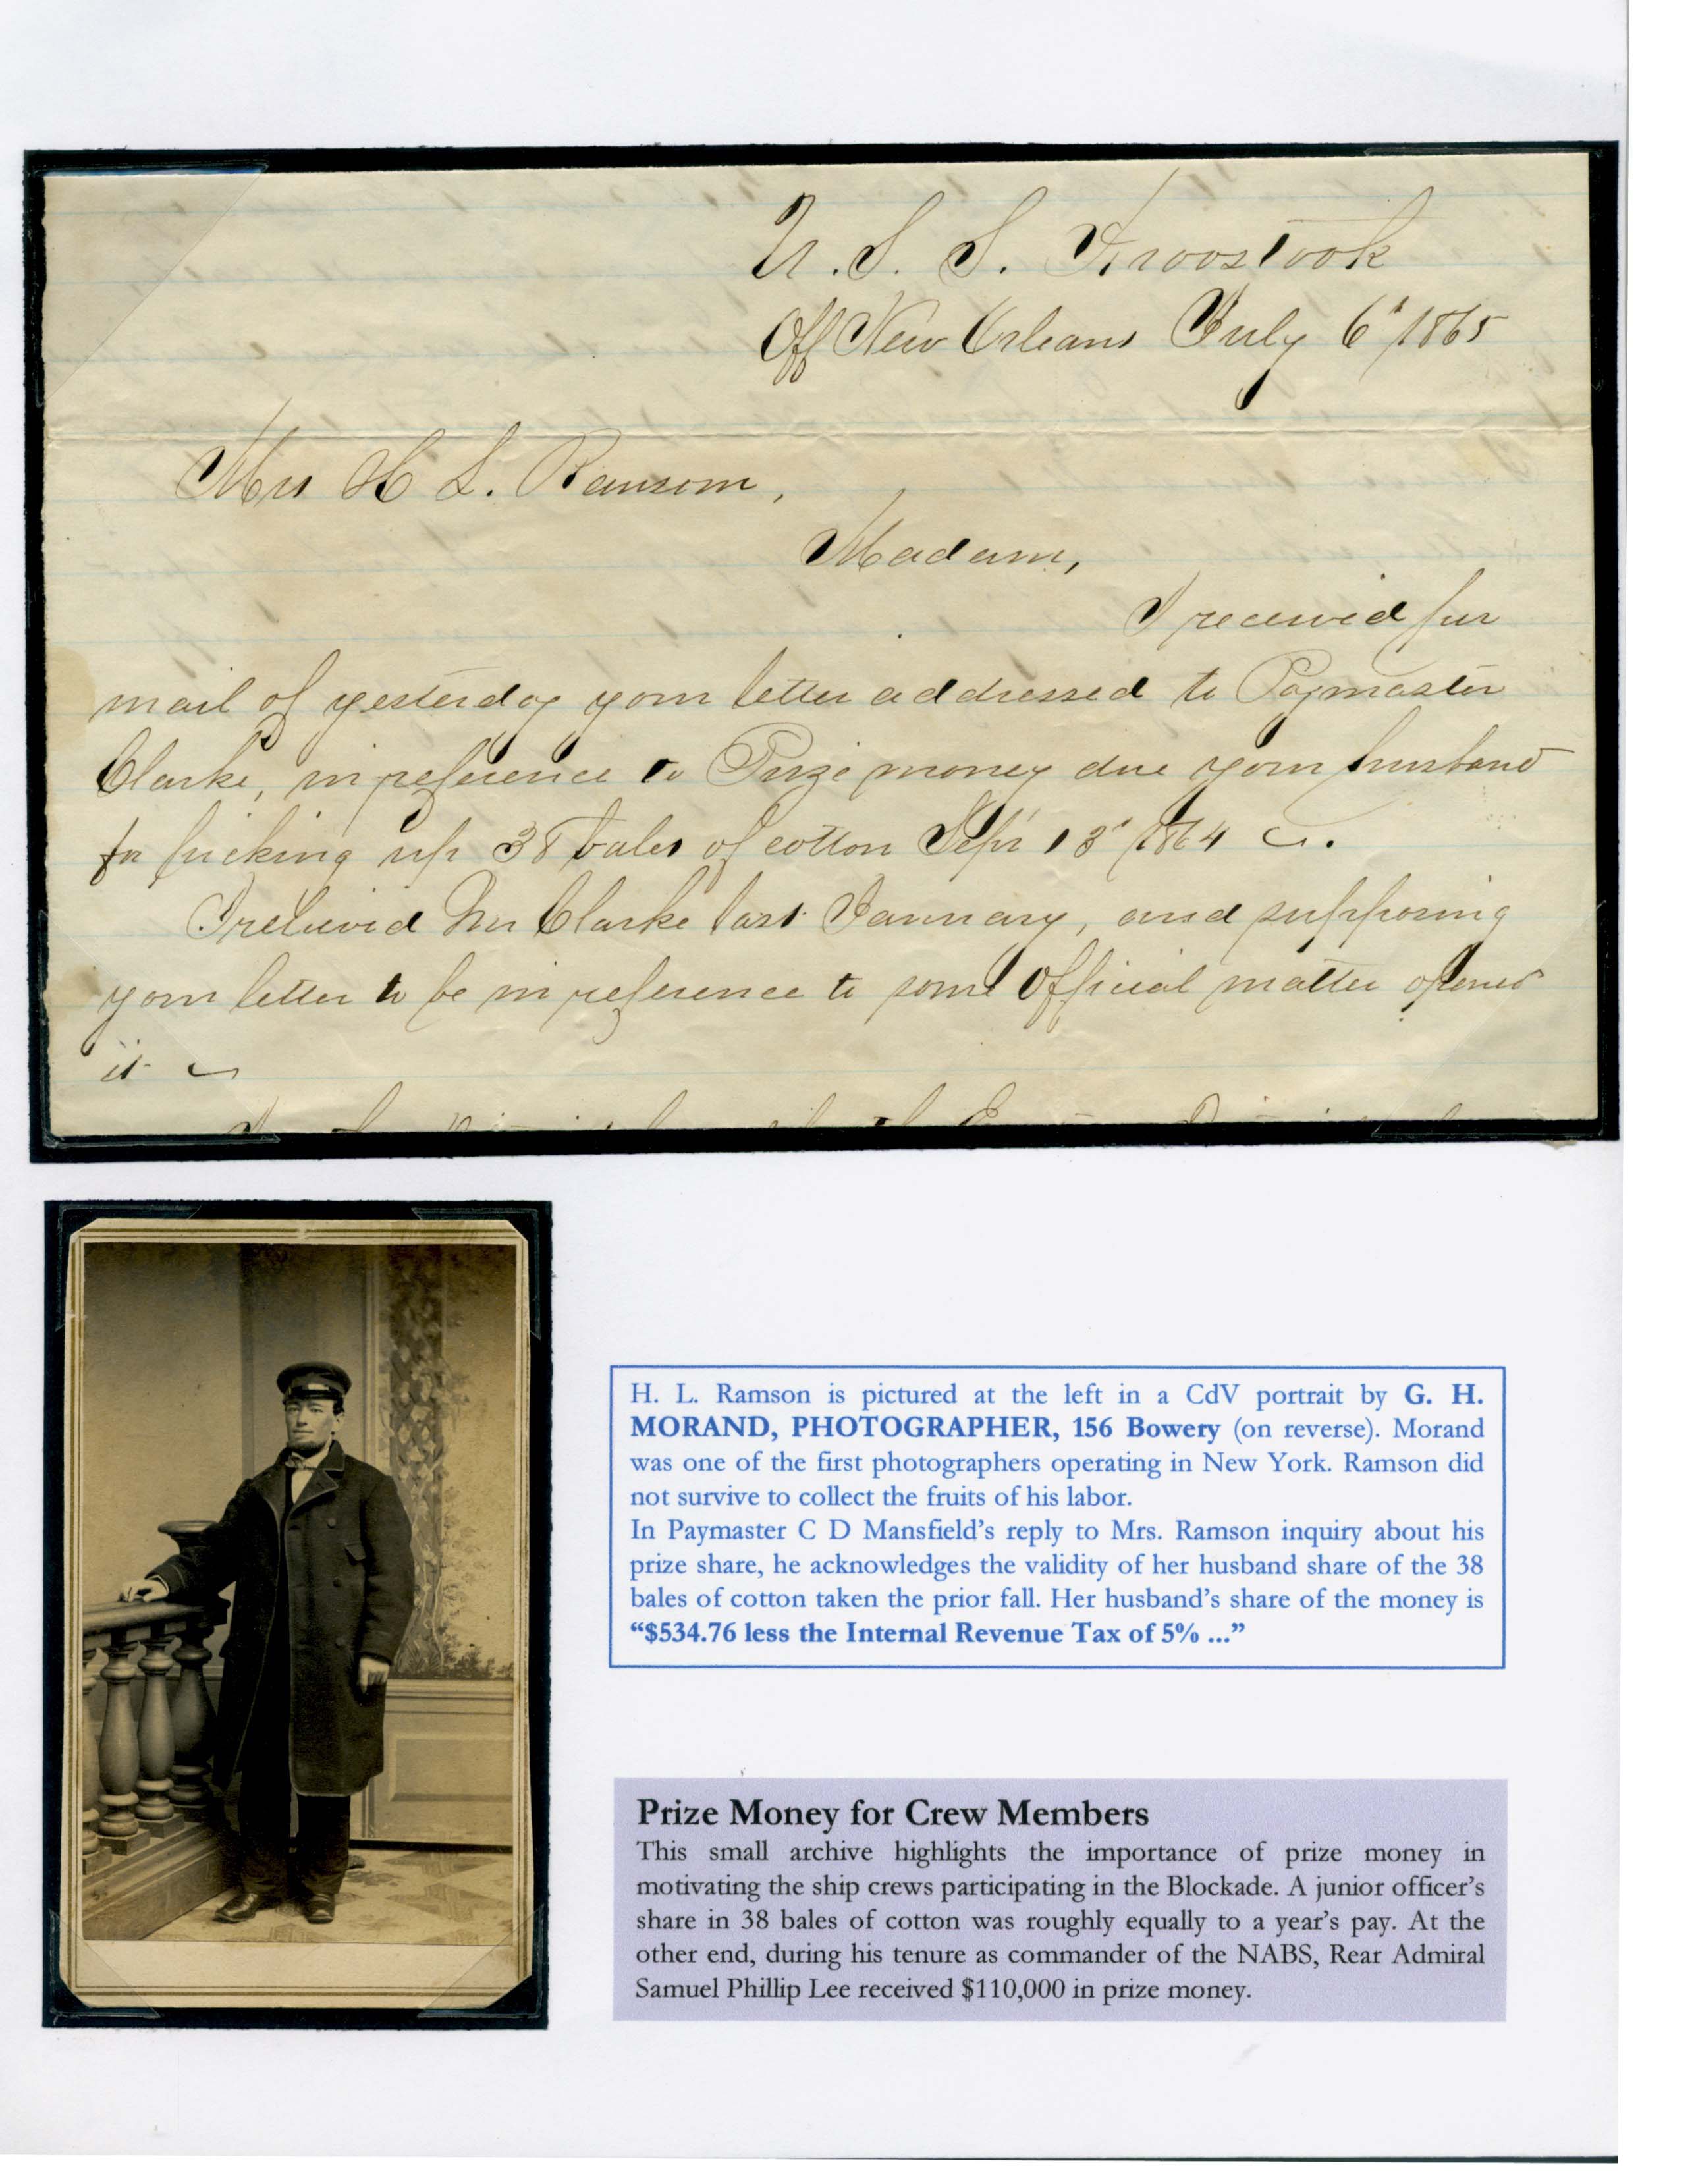 U. S. S. Aroostook
Off New Orleans July 6" 1865
Mrs H L. Ransom,
Madam,
I received per
mail of yesterday your letter addressed to Paymaster
Clarke, in reference to Prize money due your husband
for picking up 38 bales of cotton Sept 13" 1864
I relieved Mr Clarke last January, and supposing
your letter to be in reference to some Official matter opened
it
H. L. Ramson is pictured at the left in a CdV portrait by G. H.
MORAND, PHOTOGRAPHER, 156 Bowery (on reverse). Morand
was one of the first photographers operating in New York. Ramson did
not survive to collect the fruits of his labor.
In Paymaster C D Mansfield's reply to Mrs. Ramson inquiry about his
prize share, he acknowledges the validity of her husband share of the 38
bales of cotton taken the prior fall. Her husband's share of the money is
“$534.76 less the Internal Revenue Tax of 5% ...”
Prize Money for Crew Members
This small archive highlights the importance of prize money in
motivating the ship crews participating in the Blockade. A junior officer's
share in 38 bales of cotton was roughly equally to a year's pay. At the
other end, during his tenure as commander of the NABS, Rear Admiral
Samuel Phillip Lee received $110,000 in prize money.